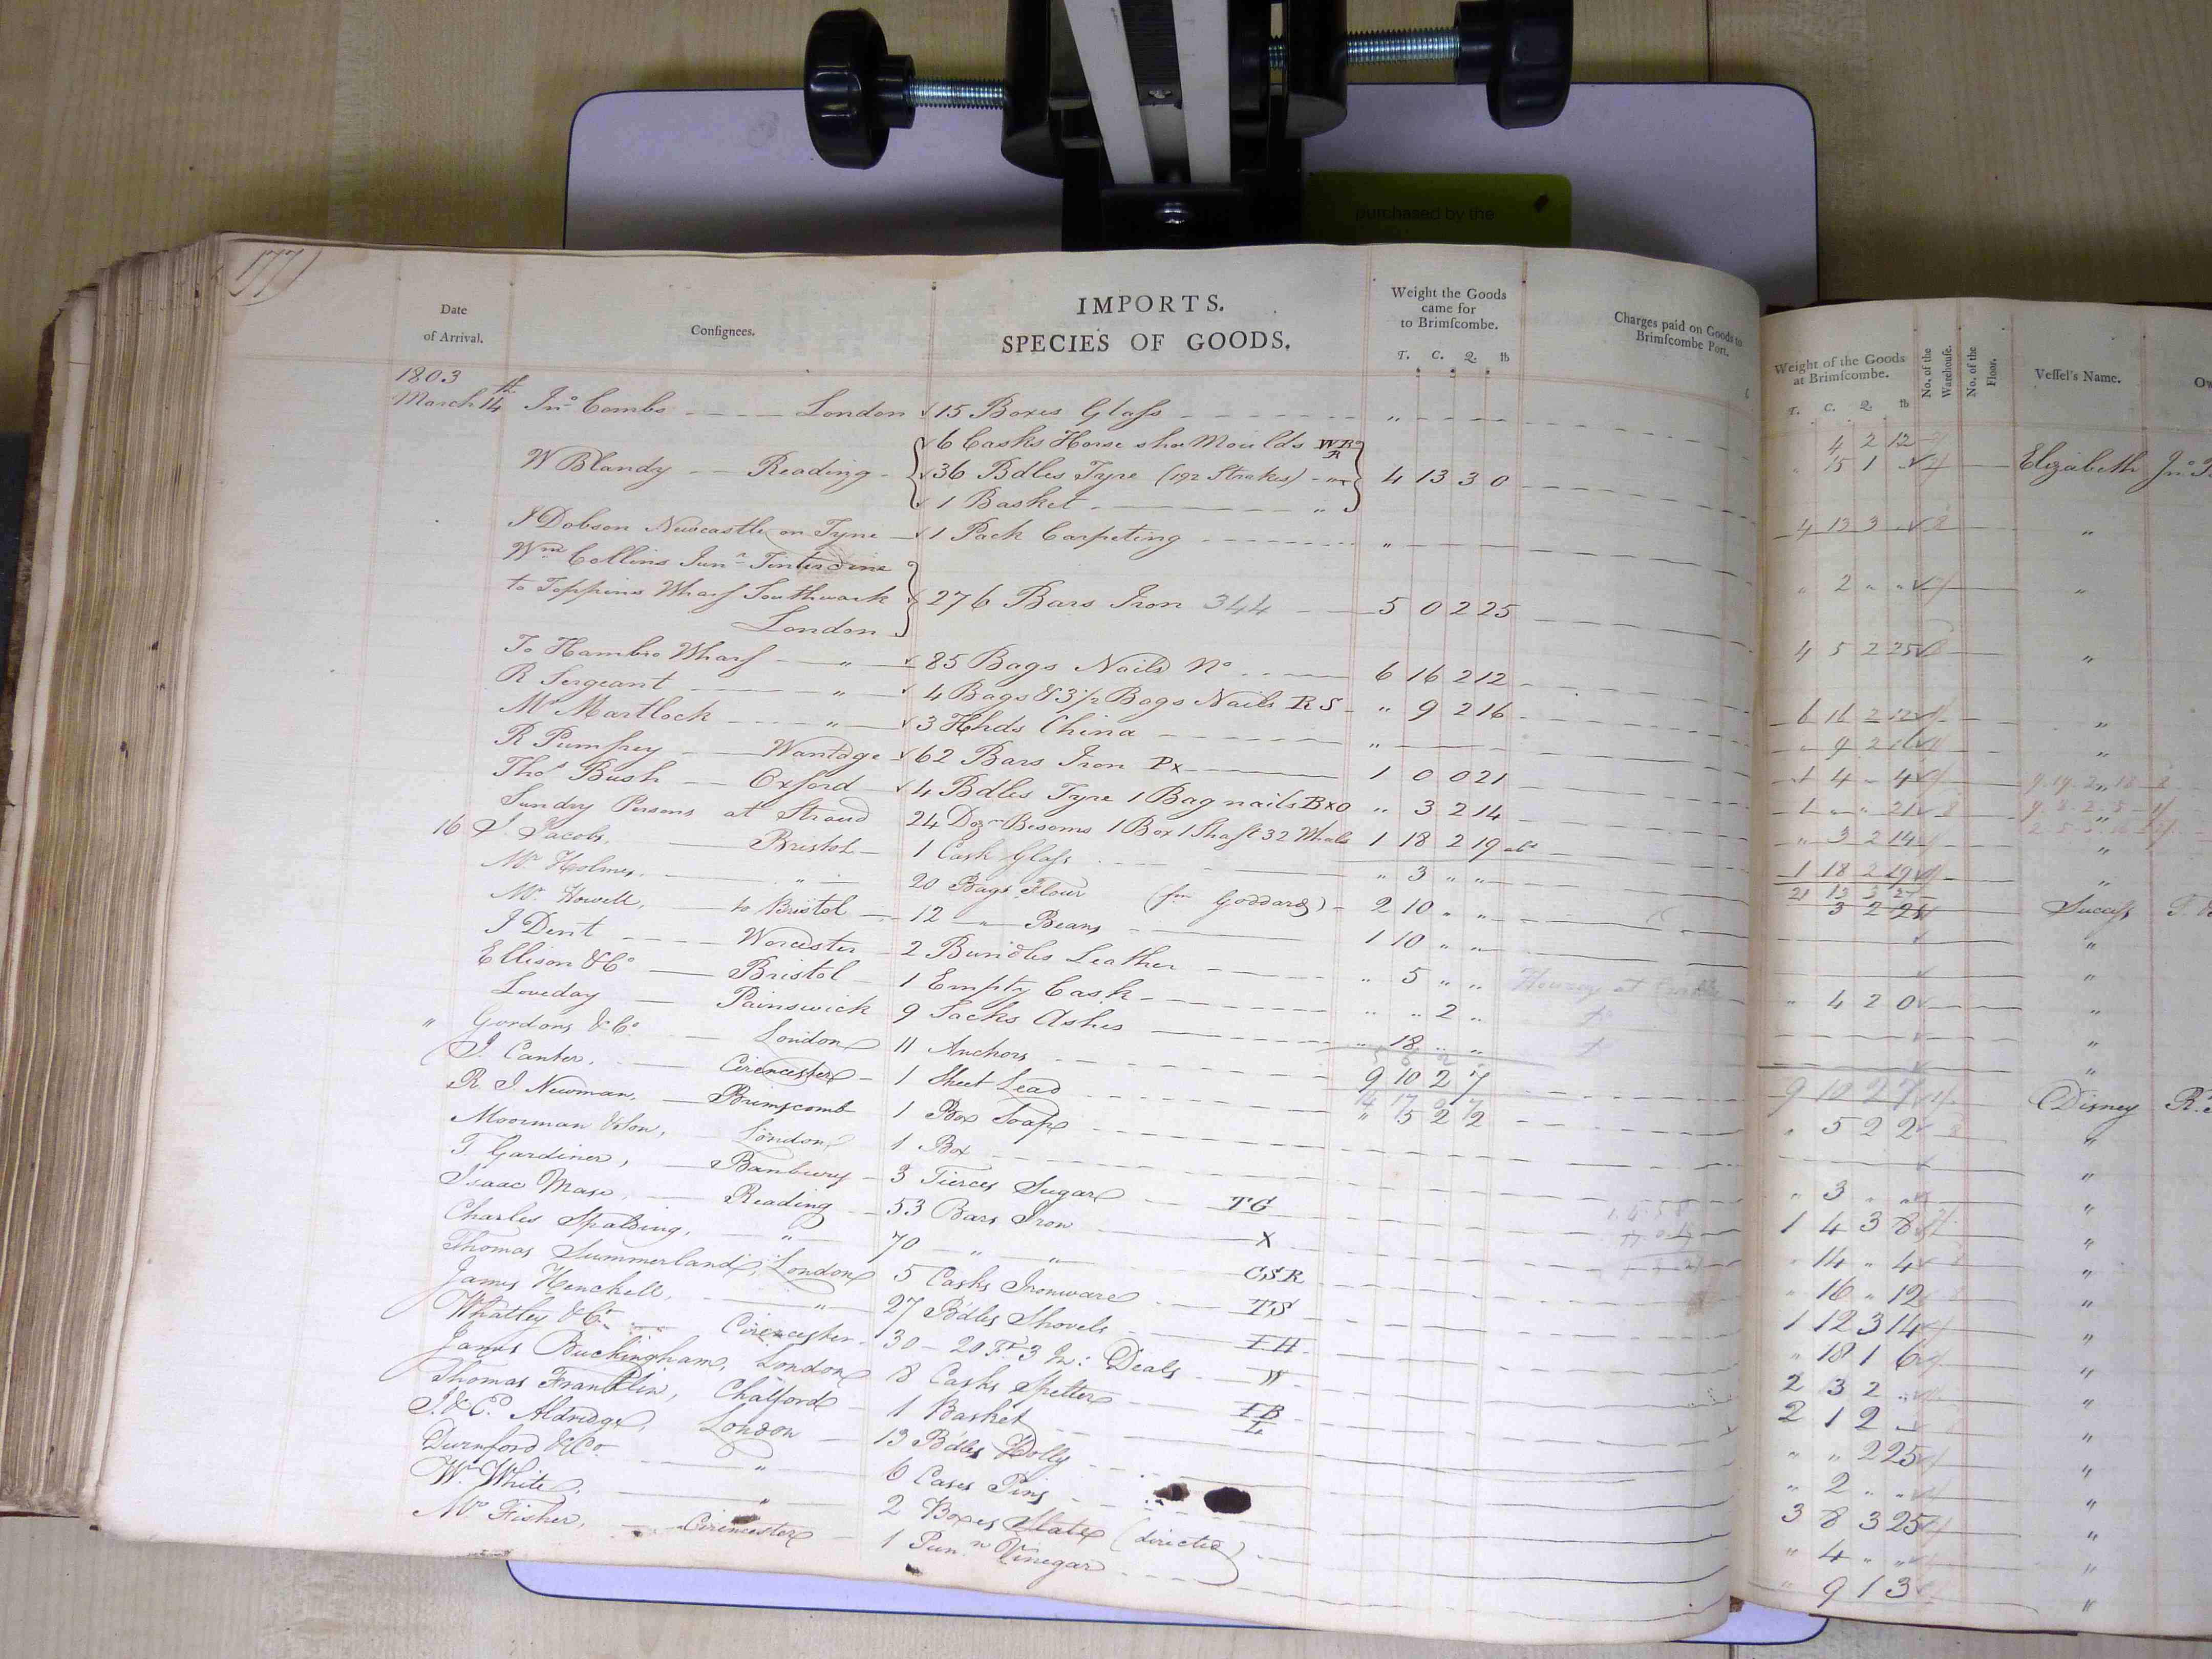 177
purchased by the
Date of Arrival.
Consignees.
IMPORTS.
SPECIES OF GOODS.
Weight the Goods came for to Brimscombe.
T. C. Q. lb
Charges paid on Goods to Brimscombe Port.
Weight of the Goods at Brimscombe.
T. C. Q. lb
No. of the Warehouse.
No. of the Floor.
Vessel's Name.
1803
March 14th Jno Combs London 15 Boxes Glass 4 2 12
W Blandy Reading 6 Casks Horse shoe Moulds WB R 15 1 Elizabeth Jno
36 Bdles Tyre (192 Strakes) 4 13 3 0
1 Basket 4 13 3
J Dobson Newcastle on Tyne 1 Pack Carpeting 2
Wm Collins Junr
to Toppins Wharf Southwark 276 Bars Iron 344 5 0 2 25 4 5 2 25
London
To Hambro Wharf " 85 Bags Nails No 6 16 2 12 6 16 2 12
R Sergeant " 4 Bags & 3 1/2 Bags Nails RS " 9 2 16 " 9 2 16
Mr Martlock " 3 Hhds China " 1 4 - 4
R Pumfrey Wantage 62 Bars Iron Px 1 0 0 21 1 " " 21
Thos Bush Oxford 4 Bdles Tyre 1 Bag nails BXO " 3 2 14 " 3 2 14
Sundry Persons at Stroud 24 Dozn Besoms 1 Box 1 Shaft 32 Whals 1 18 2 19 abt 1 18 2 19
21 13 3 27
16 J. Jacobs, Bristol 1 Cask Glass " 3 " " 3 2 21 Success
Mr Holmes, " 20 Bags Flour (for Goddard) 2 10 " " "
Mr Howell, to Bristol 12 " Beans 1 10 " " "
J Dent Worcester 2 Bundles Leather " 5 " " " 4 2 0 "
Ellison & Co Bristol 1 Empty Cask " " 2 " "
Loveday Painswick 9 Sacks Ashes " 18 " " "
" Gordons & Co London 11 Anchors 9 10 2 7 9 10 2 7 Disney
J. Canter, Cirencester 1 Sheet Lead " 5 2 2 " 5 2 2 "
R. J. Newman, Brimscomb 1 Box Soap "
Moorman & Son, London 1 Box " 3 " " "
T. Gardiner, Banbury 3 Tierces Sugar TG 1 4 3 8 "
Isaac Mase, Reading 53 Bars Iron X " 14 " 4 "
Charles Spalding, " 70 " " CSR " 16 " 12 "
Thomas Summerland, London 5 Casks Ironware TS 1 12 3 14 "
James Henchell, " 27 Bdles Shovels IH " 18 1 6 "
Whatley & Co Cirencester 30 - 20 Ft 3 In: Deals " 2 3 2 " "
James Buckingham, London 8 Casks Spelter IB 2 1 2 "
Thomas Franklin, Chalford 1 Basket L " " 2 25 "
J. & C. Aldridge, London 13 Bdles Holly " 2 " " "
Durnford & Co " 6 Cases Pins 3 8 3 25 "
Wm White, " 2 Boxes Slate (directed) " 4 " " "
Mr Fisher, Cirencester 1 Punn Vinegar " 9 1 3 "